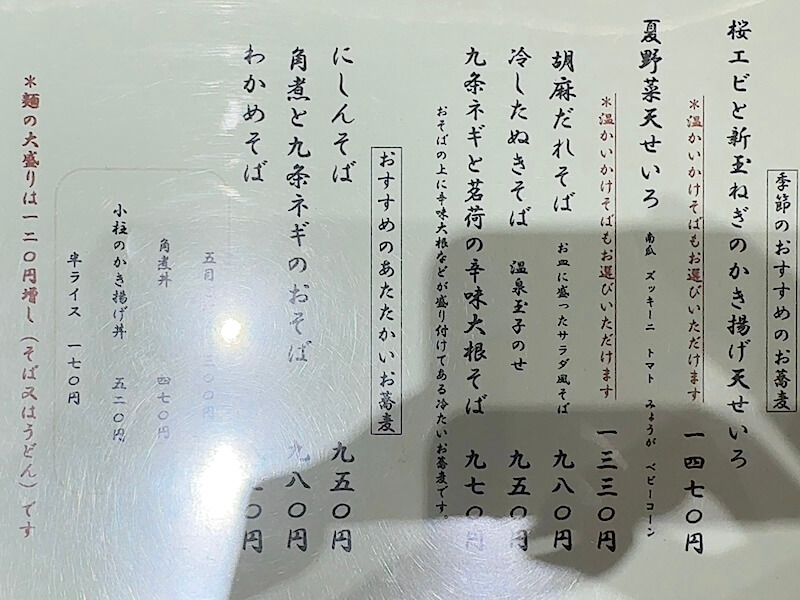 季節のおすすめのお蕎麦
桜エビと新玉ねぎのかき揚げ天せいろ
＊温かいかけそばもお選びいただけます 一四七〇円
夏野菜天せいろ 南瓜 ズッキーニ トマト みょうが ベビーコーン
＊温かいかけそばもお選びいただけます 一三三〇円
胡麻だれそば お皿に盛ったサラダ風そば 九八〇円
冷したぬきそば 温泉玉子のせ 九五〇円
九条ネギと茗荷の辛味大根そば 九七〇円
おそばの上に辛味大根などが盛り付けてある冷たいお蕎麦です。
おすすめのあたたかいお蕎麦
にしんそば 九五〇円
角煮と九条ネギのおそば 九八〇円
わかめそば 〇円
五目 〇〇円
角煮丼 四七〇円
小柱のかき揚げ丼 五二〇円
半ライス 一七〇円
＊麺の大盛りは一二〇円増し（そば又はうどん）です